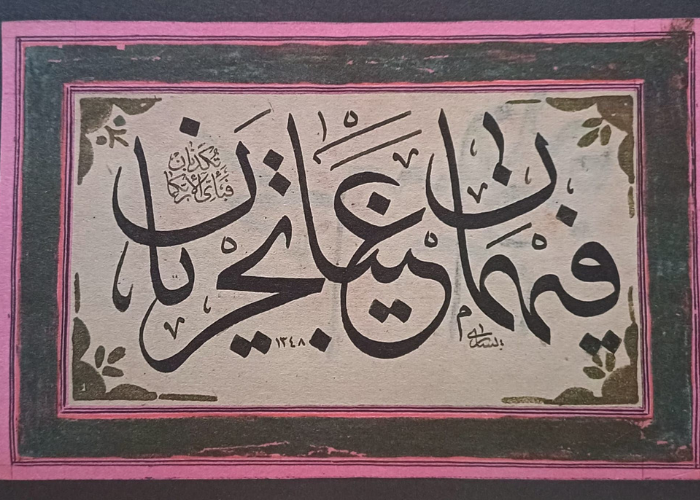 فيهما عينان تجريان
فبأي آلاء ربكما
تكذبان
١٣٤٨